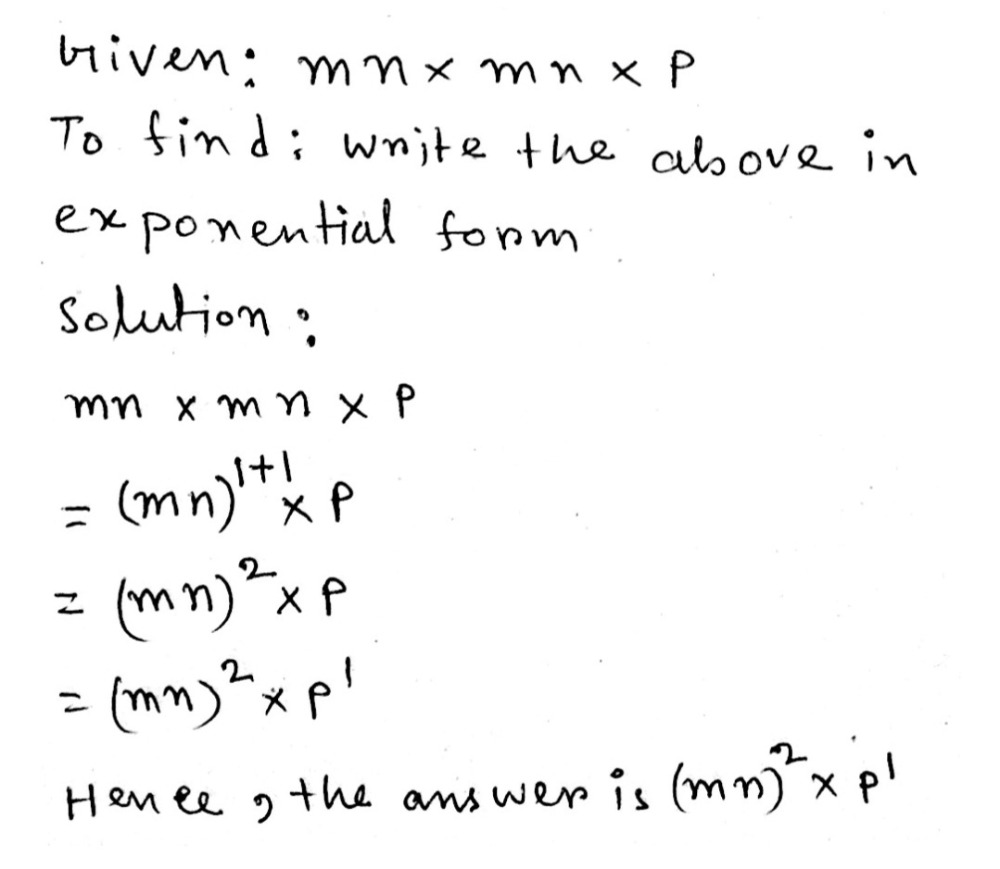 Given: mn × mn × P
To find: write the above in
exponential form
Solution:
mn × mn × P
= (mn)¹⁺¹ × P
= (mn)² × P
= (mn)² × P¹
Hence, the answer is (mn)² × P¹